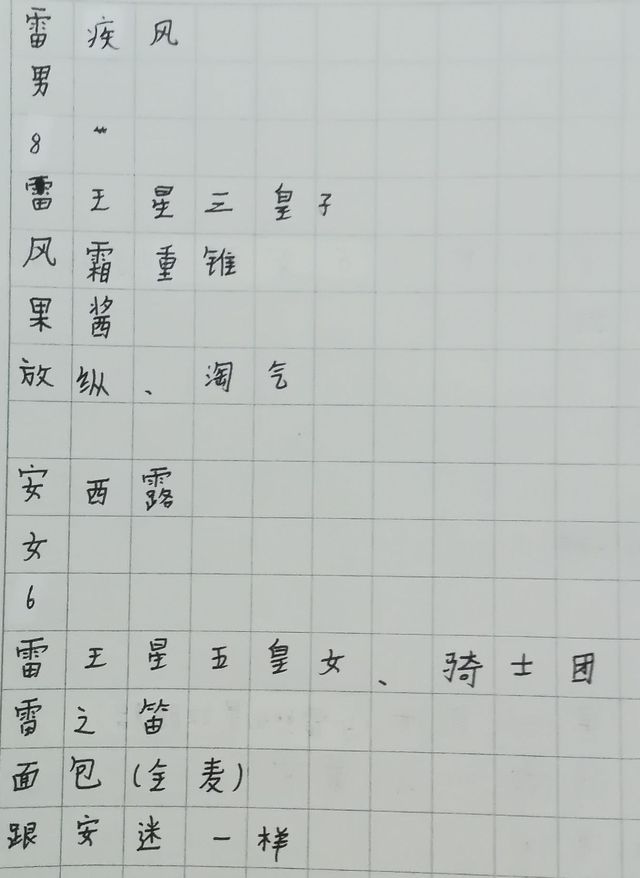 雷疾风
男
8
雷王星三皇子
风霜重锥
果酱
放纵、淘气
安西露
女
6
雷王星五皇女、骑士团
雷之笛
面包(全麦)
跟安迷一样